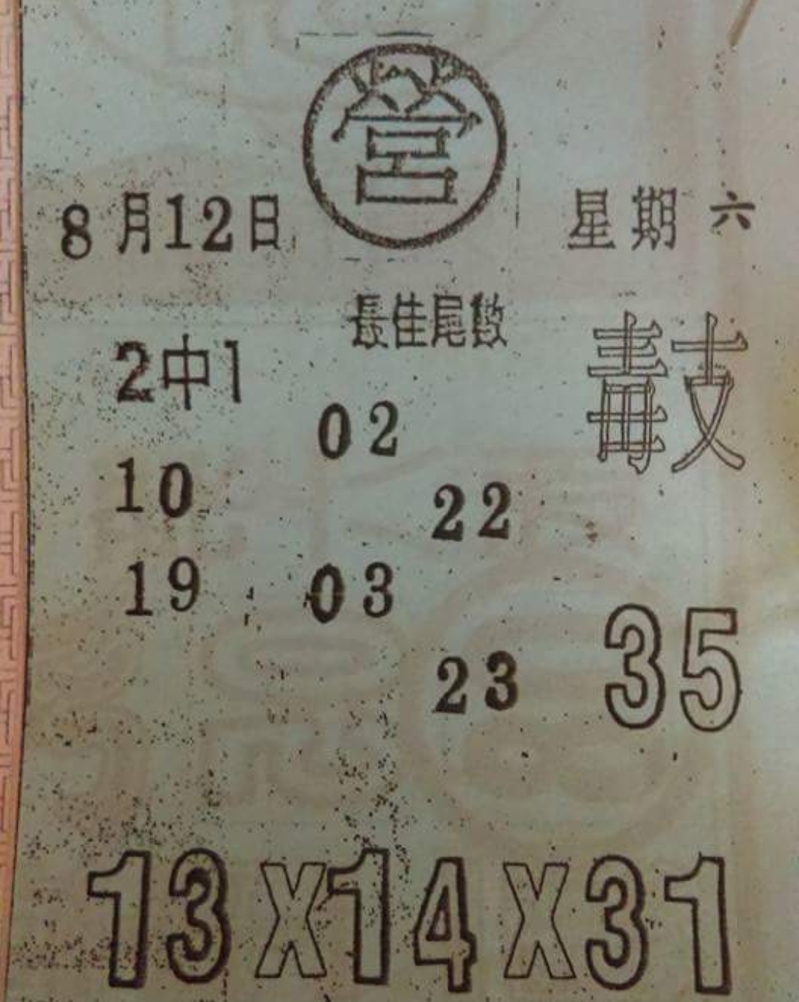 營
8月12日 星期六
長佳尾數
2中1 毒支
02
10 22
19 03
23 35
13X14X31